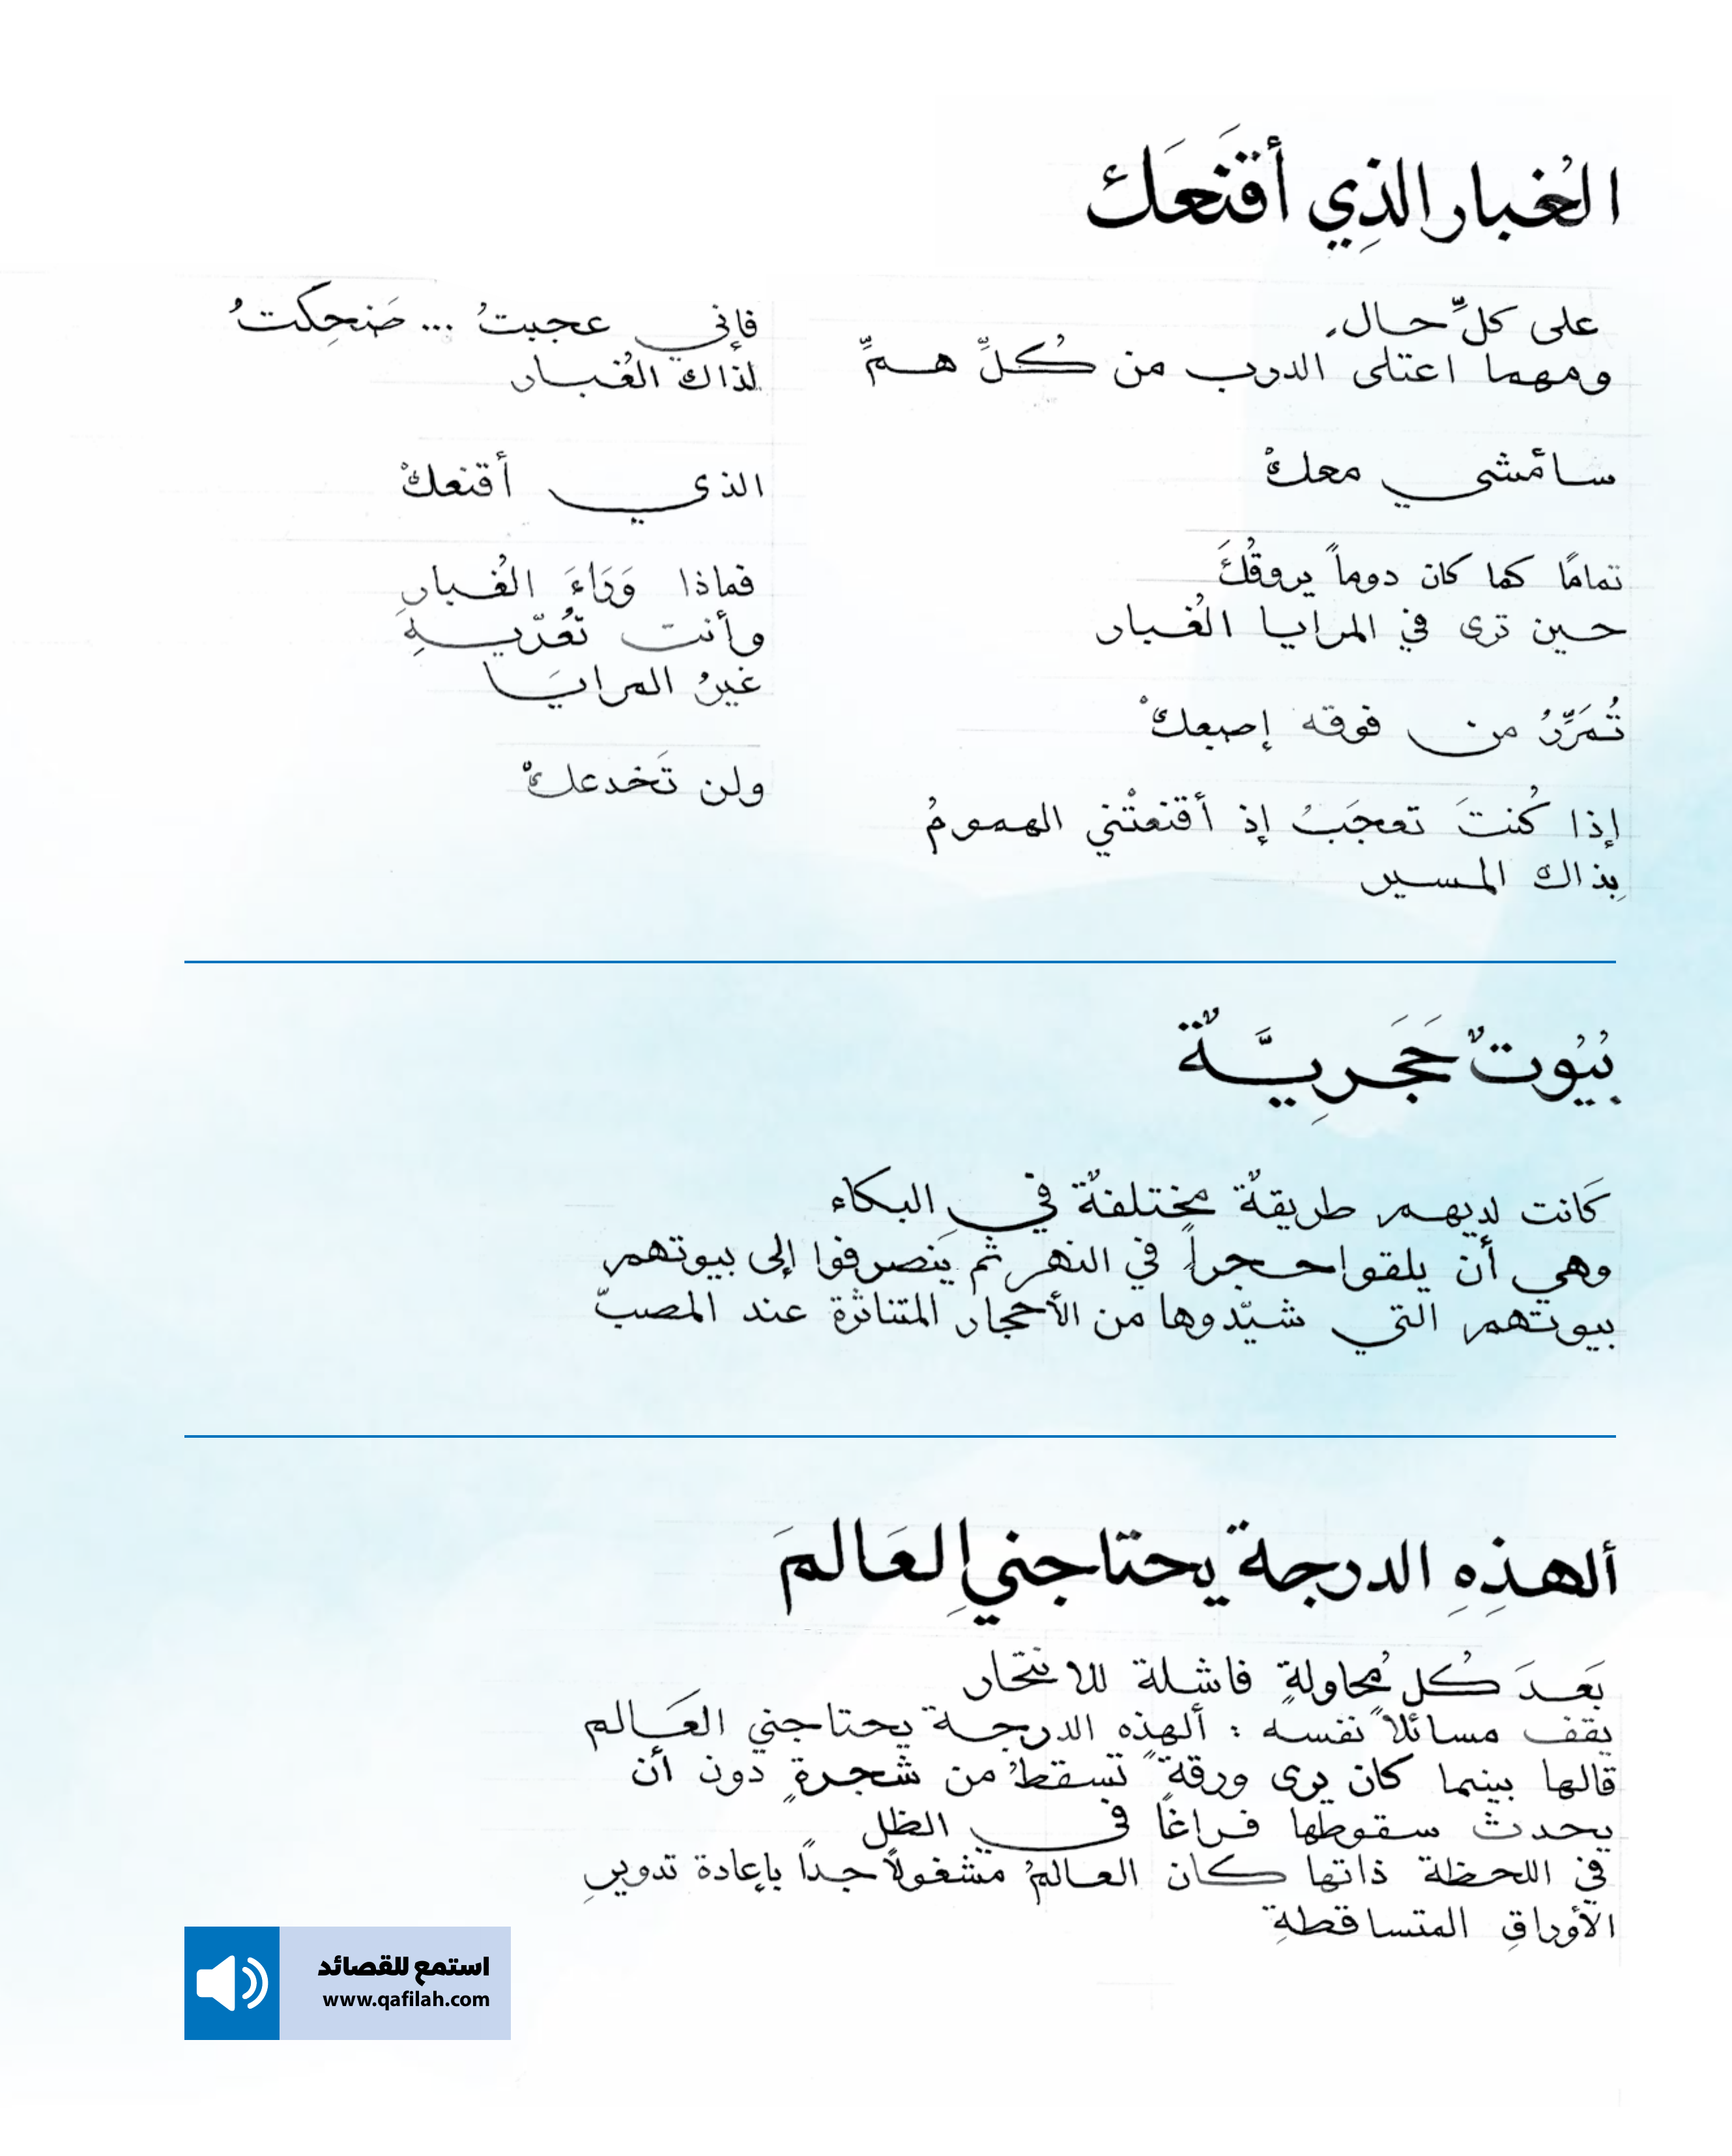 الغُبار الذِي أقنَعَك
على كلِّ حال
ومهما اعتلى الدرب من كُلِّ همٍّ
سأمشي معكْ
تمامًا كما كان دوماً يروقُكَ
حين ترى في المرايا الغُبار
تُمَرِّرُ من فوقه إصبعكْ
إذا كُنتَ تعجَبُ إذ أقنعتْني الهمومُ
بِذاك المسير
فإني عجبتُ ... ضَحِكتُ
لذاك الغُبار
الذي أقنعكْ
فماذا وَرَاءَ الغُبارِ
وأنت تُعَرّيهِ
غيرُ المرايَا
ولن تَخدعكْ
بُيُوتٌ حَجَرِيَّةٌ
كَانت لديهم طريقةٌ مختلفةٌ في البكاء
وهي أن يلقوا حجراً في النهر ثم يَنصرفوا إلى بيوتهم
بيوتهم التي شيّدوها من الأحجار المتناثرة عند المصبّ
ألهذِهِ الدرجة يحتاجني العَالمَ
بَعدَ كُل مُحاولةٍ فاشلة للانتحار
يقف مسائلاً نفسه : ألهذه الدرجة يحتاجني العَالم
قالها بينما كان يرى ورقةً تسقطُ من شجرةٍ دون أن
يحدث سقوطها فراغاً في الظل
في اللحظة ذاتها كان العالمُ مشغولاً جداً بإعادة تدويرِ
الأوراقِ المتساقطةِ
استمع للقصائد
www.qafilah.com